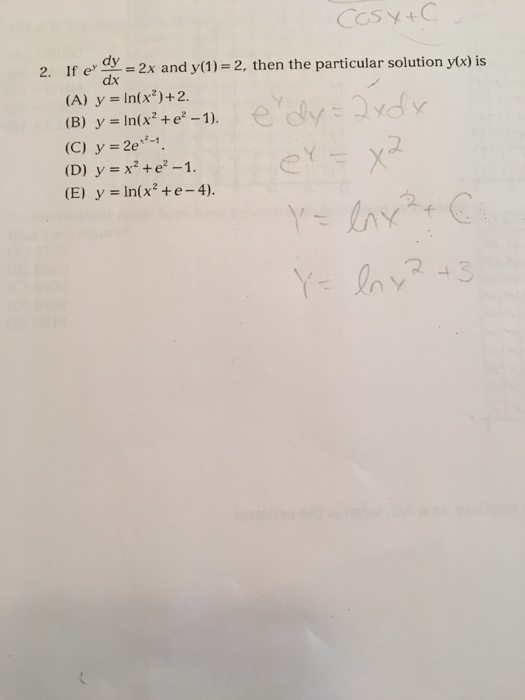 cosx+C
2. If e^y dy/dx = 2x and y(1) = 2, then the particular solution y(x) is
(A) y = ln(x²)+2.
(B) y = ln(x² + e² − 1).
(C) y = 2e^(x²−1).
(D) y = x² + e² − 1.
(E) y = ln(x² + e − 4).
e^y dy = 2xdx
e^y = x²
y = lnx² + C
y = lnx² + 3